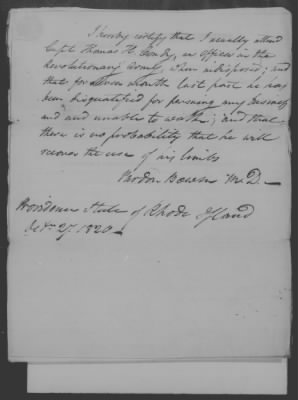 I hereby certify that I usually attend
Capt. Thomas H. , an officer in the
Revolutionary Army, when indisposed; and
that for seven months last past he has
been disqualified for pursuing any business
and and unable to walk; and that
there is no probability that he will
recover the use of his limbs
Pardon Bowen M.D.
Providence State of Rhode Island
27. 1820